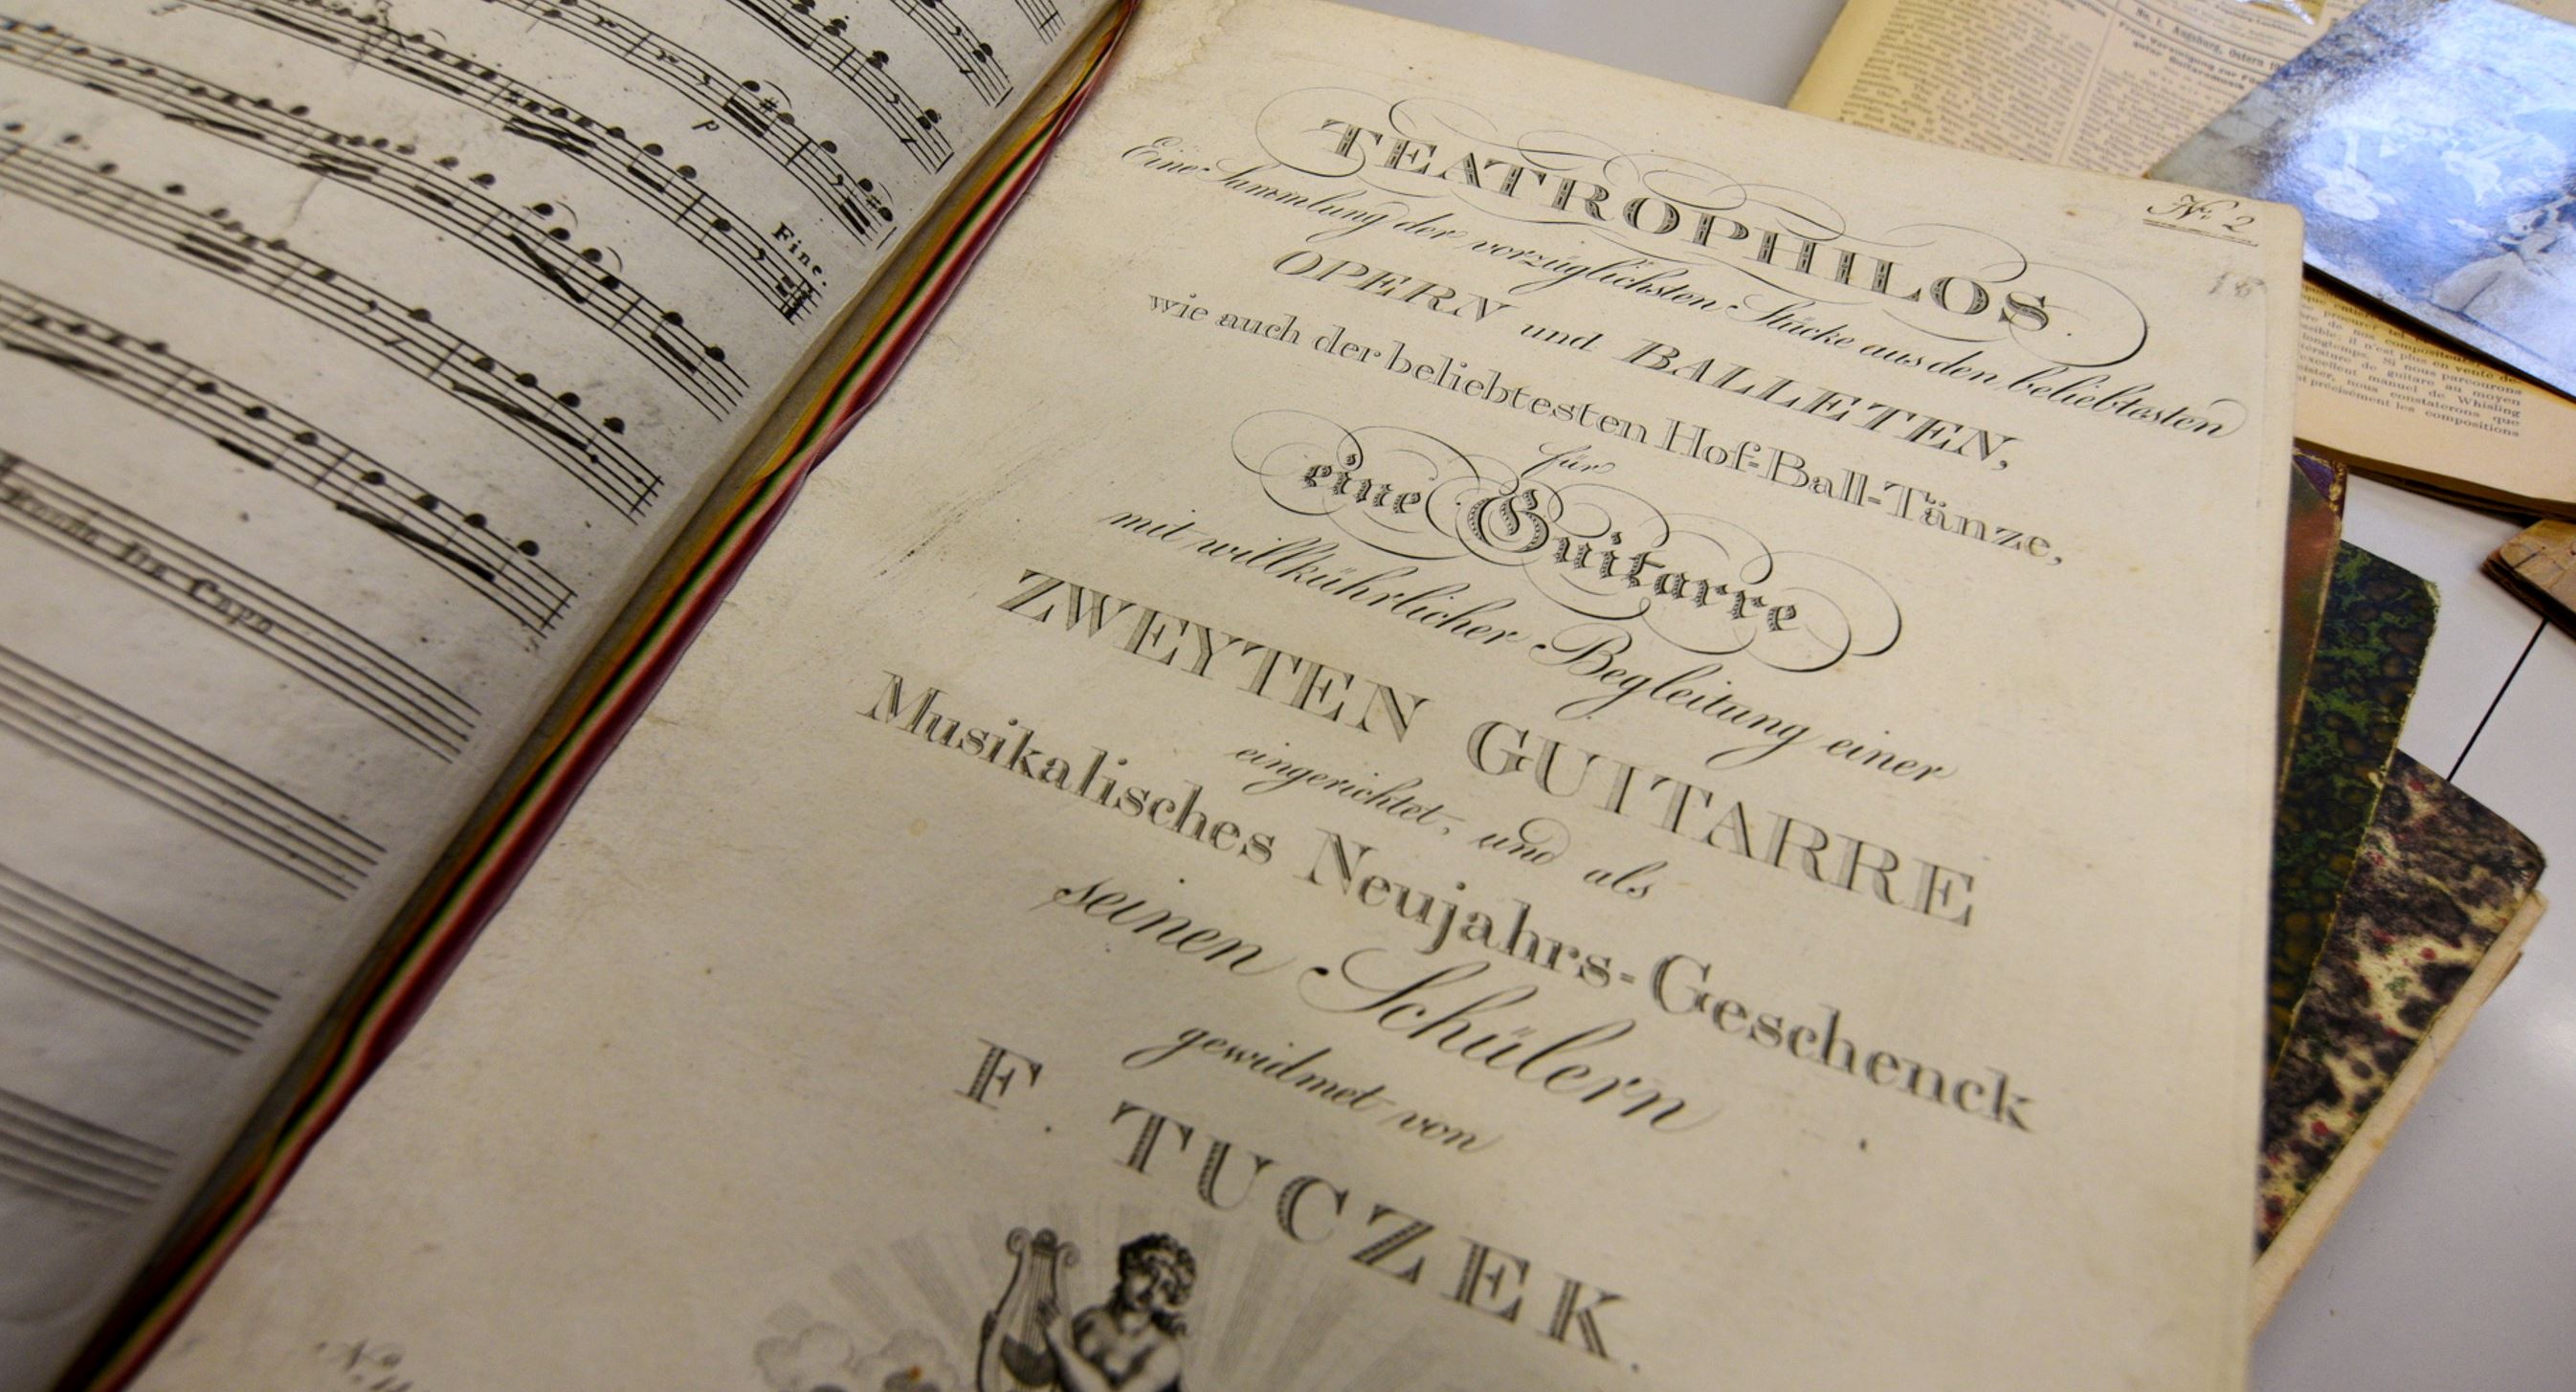 p
Fine.
Da Capo
TEATROPHILOS.
No. 2
Eine Sammlung der vorzüglichsten Stücke aus den beliebtesten
OPERN und BALLETEN,
wie auch der beliebtesten Hof-Ball-Tänze,
für
eine Guitarre
mit willkührlicher Begleitung einer
ZWEYTEN GUITARRE
eingerichtet, und als
Musikalisches Neujahrs-Geschenck
seinen Schülern
gewidmet von
F. TUCZEK.
Augsburg, Ostern
longtemps. Si nous parcourons
de guitare au moyen
manuel de Whisling
nous constaterons que
précisément les compositions